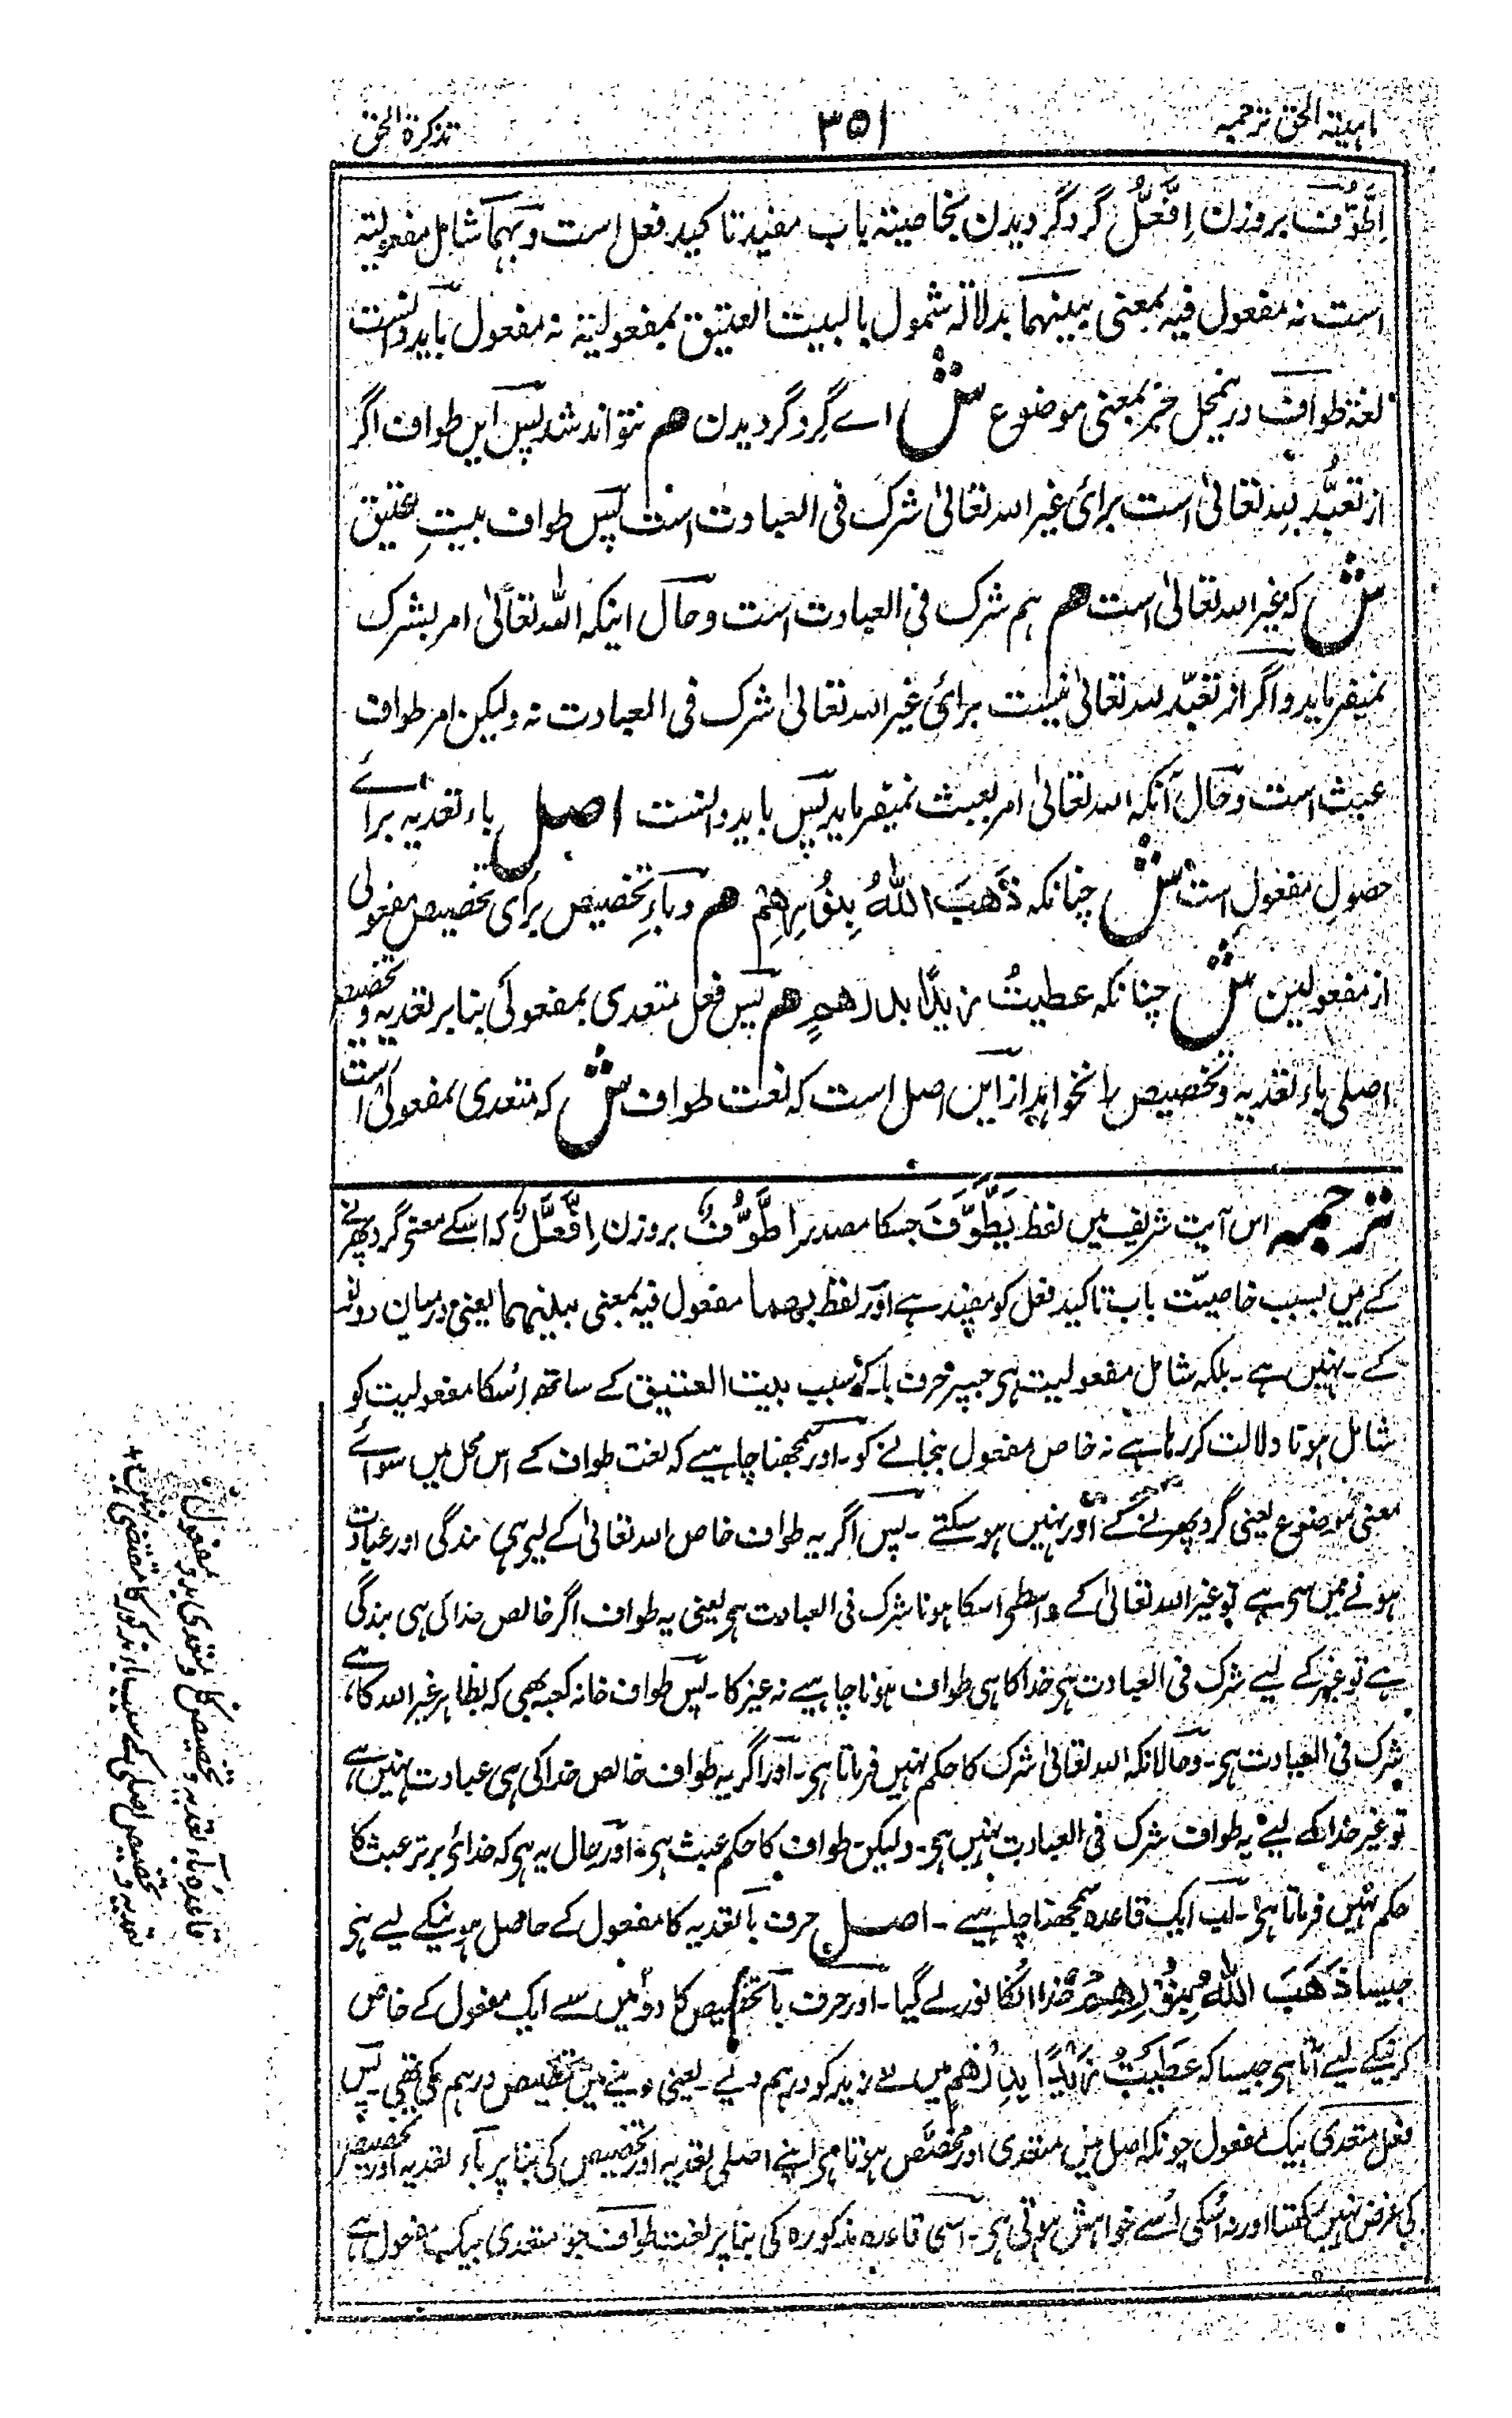 ماہیتہ الحق ترجمہ ۳۵۱ تذکرۃ الحق
اِطَّوُّف بروزن اِفَّعُّل گرد گردیدن بخاصیتہ باب مفید تاکید فعل است و بہما شامل مفعولیتہ
است نہ مفعول فیہ بمعنی بینہما بدلالۃ شمول با لبیت العتیق بمفعولیتہ نہ مفعول باید دانست
لغۃ طواف درینمحل جز بمعنی موضوع ش اے گِرد گردیدن هم نتواند شد پس این طواف اگر
از تعبُّد للہ تعالیٰ است برائ غیر اللہ تعالیٰ شرک فی العبادت است پس طواف بیتِ عتیق
ش کہ غیر اللہ تعالیٰ است هم ہم شرک فی العبادت است و حال اینکہ اللہ تعالیٰ امر بشرک
نمیفرماید و اگر از تعبّد للہ تعالیٰ نیست برائ غیر اللہ تعالیٰ شرک فی العبادت نہ و لیکن امر طواف
عبث است و حال آنکہ اللہ تعالیٰ امر بعبث نمیفرماید پس باید دانست اصل باء تعدیہ براے
حصول مفعول است ش چنانکہ ذَهَبَ اللهُ بِنُوْرِهِمْ هم و باءِ تخصیص برای تخصیص مفعولی
از مفعولین ش چنانکہ عطیتُ زیدًا بدرهمٍ هم پس فعل متعدی بمفعولی بنابر تعدیہ و تخصیص
اصلی باء تعدیہ و تخصیص را نخواہد ازاین اصل است کہ لغت طواف ش کہ متعدی بمفعولی است
ترجمہ اس آیت شریف میں لفظ یَطَّوَّفَ جسکا مصدر اِطَّوُّف بروزن اِفَّعُّل کہ اسکے معنی گرد پھرنے
کے ہیں بسبب خاصیّت باب تاکید فعل کو مفید ہے اور لفظ بھما مفعول فیہ بمعنی بینہما یعنی درمیان دونو
کے۔ نہیں ہے۔ بلکہ شامل مفعولیت ہی جسپر حرف با کہ بسبب بیت العتیق کے ساتھ اُسکا مفعولیت کو
شامل ہونا دلالت کر رہا ہے نہ خاص مفعول بنجانے کو۔ اور سمجھنا چاہیے کہ لغت طواف کے اس محل میں سوائے
معنی موضوع یعنی گرد پھرنے کے اور نہیں ہو سکتے۔ پس اگر یہ طواف خاص اللہ تعالیٰ کے لیے ہی بندگی اور عبادت
ہونے میں سے ہے تو غیر اللہ تعالیٰ کے واسطے اسکا ہونا شرک فی العبادت ہی یعنی یہ طواف اگر خالص خدا کی ہی بندگی
ہے تو غیر کے لیے شرک فی العبادت ہی خدا کا ہی طواف ہونا چاہیے نہ غیر کا۔ پس طواف خانہ کعبہ بھی کہ بظاہر غیر اللہ کا ہے
شرک فی العبادت ہی۔ و حالانکہ اللہ تعالیٰ شرک کا حکم نہیں فرماتا ہی۔ اور اگر یہ طواف خالص خدا کی ہی عبادت نہیں ہے
تو غیر خدا کے لیے یہ طواف شرک فی العبادت نہیں ہی۔ ولیکن طواف کا حکم عبث ہی۔ اور حال یہ ہی کہ خدائے برتر عبث کا
حکم نہیں فرماتا ہی۔ اب ایک قاعدہ سمجھنا چاہیے۔ اصل حرف با تعدیہ کا مفعول کے حاصل ہونیکے لیے ہی
جیسا ذَهَبَ اللهُ بِنُوْرِهِمْ خدا انکا نور لے گیا۔ اور حرف با تخصیص کا دو میں سے ایک مفعول کے خاص
کرنیکے لیے آتا ہی جیسا کہ عَطَیتُ زَیْدًا بِدِرْهَمٍ میں نے زید کو درہم دیے۔ یعنی دینے میں تخصیص درہم کی تھی۔ پس
فعل متعدی بیک مفعول چونکہ اصل میں متعدی اور مختص ہوتا ہی اپنے اصلی تعدیہ اور تخصیص کی بنا پر باء تعدیہ اور تخصیص
کی غرض نہیں رکھتا اور نہ اُسکی اُسے خواہش ہوتی ہی۔ اسی قاعدہ مذکورہ کی بنا پر لغت طواف جو متعدی بیک مفعول ہے
قاعدہ باء تعدیہ و تخصیص کا متعدی بدو مفعول
تعدیہ و تخصیص اصلی کے سبب باء مذکور کا مقتضی نہیں